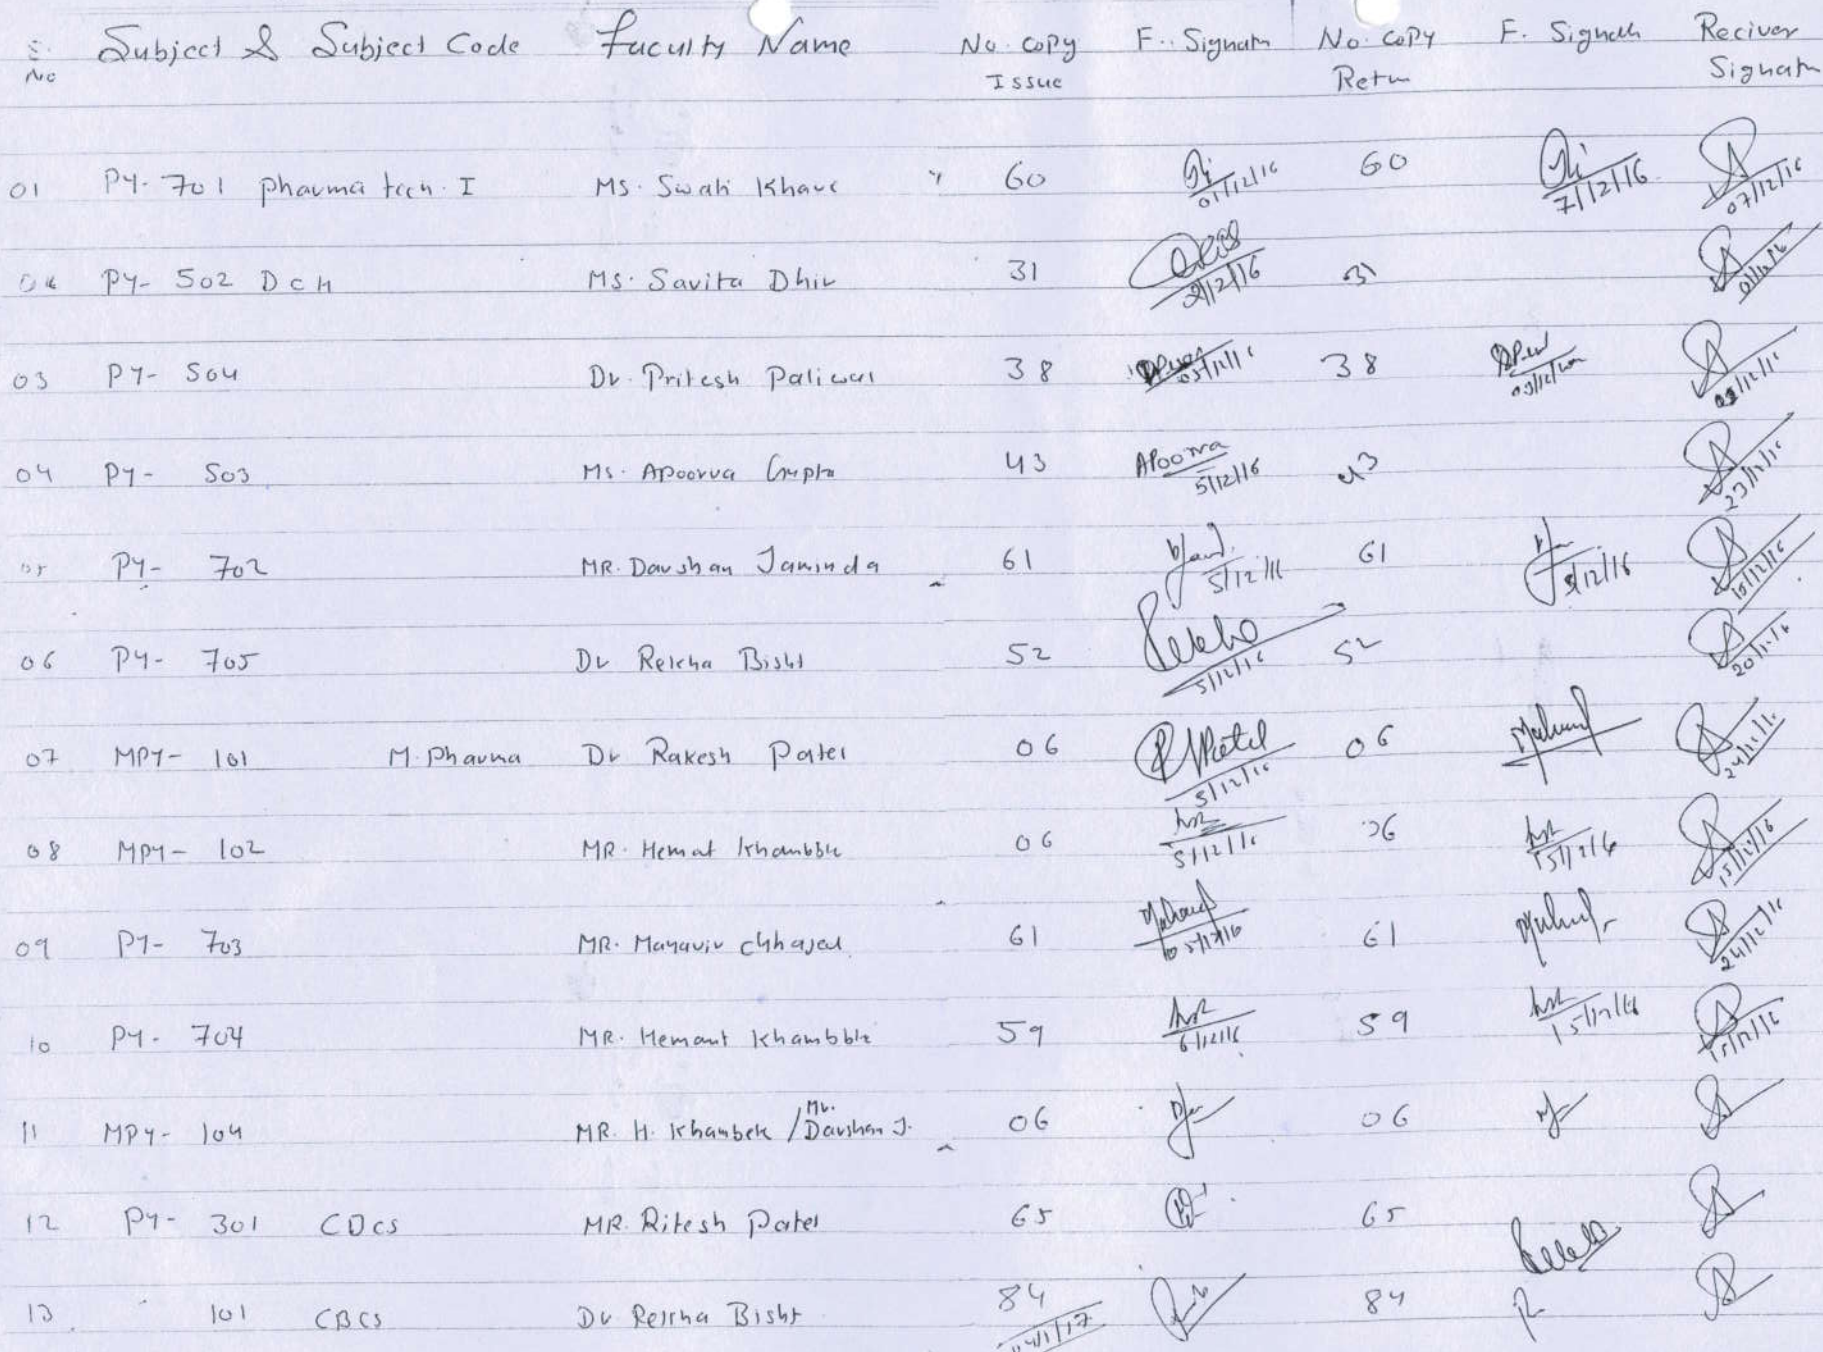 S. No Subject & Subject Code Faculty Name No. Copy Issue F. Signatr No. Copy Retur F. Signatr Reciver Signatr
01 PY-701 Pharma tech. I MS. Swati Khare 60 01/12/16 60 7/12/16 07/12/16
PY-502 DCH MS. Savita Dhir 31 2/12/16 31
03 PY-504 Dr. Pritesh Paliwal 38 38
04 PY-503 Ms. Apoorva Gupta 43 Apoorva 5/12/16 43 23/12/16
05 PY-702 MR. Darshan Janinda 61 5/12/16 61 15/12/16
06 PY-705 Dr Rekha Bisht 52 5/12/16 52 20/12/16
07 MPY-101 M. Pharma Dr Rakesh Patel 06 RPatel 5/12/16 06 24/12/16
08 MPY-102 MR. Hemat Khambble 06 5/12/16 06 15/12/16 15/12/16
09 PY-703 MR. Mahavir Chhajed 61 05/12/16 61 24/12/16
10 PY-704 MR. Hemant Khambble 59 6/12/16 59 15/12/16 15/12/16
11 MPY-104 MR. H. Khambek / Mr. Darshan J. 06 06
12 PY-301 CDCS MR. Ritesh Patel 65 65
13 101 CBCS Dr Rekha Bisht 84 84